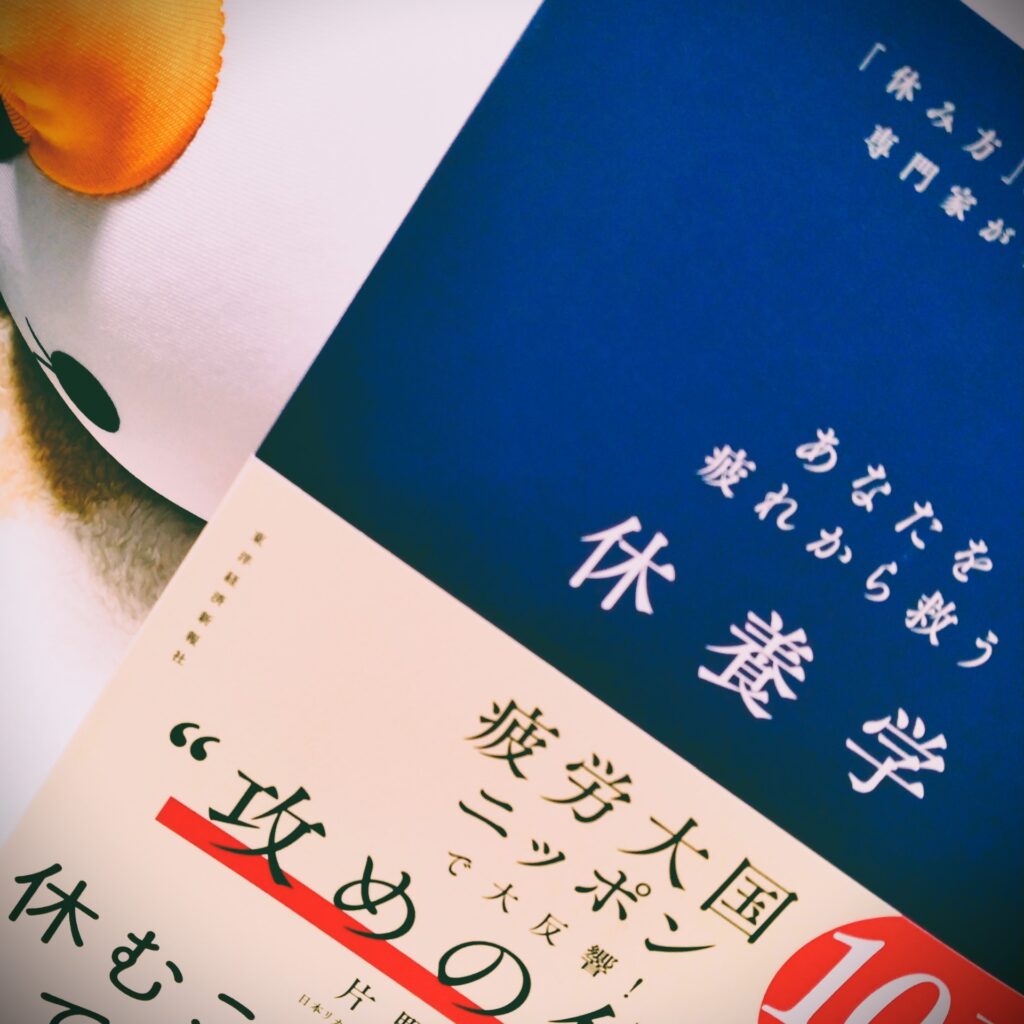 「休み方」
専門家が
あなたを
疲れから救う
休養学
東洋経済新報社
疲労大国
ニッポン
で大反響！
10
“攻めの
休むこ
片野
日本リカ